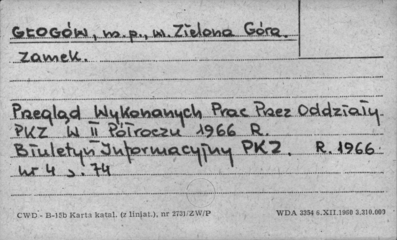 GŁOGÓW, m.p., w. Zielona Góra.
Zamek.
Przegląd Wykonanych Prac Przez Oddziały
PKZ W II Półroczu 1966 R.
Biuletyn Informacyjny PKZ. R. 1966
nr 4 s. 74
CWD - B-15b Karta katal. (z liniat.), nr 2721/ZW/P WDA 2354 6.XII.1960 3,210.000